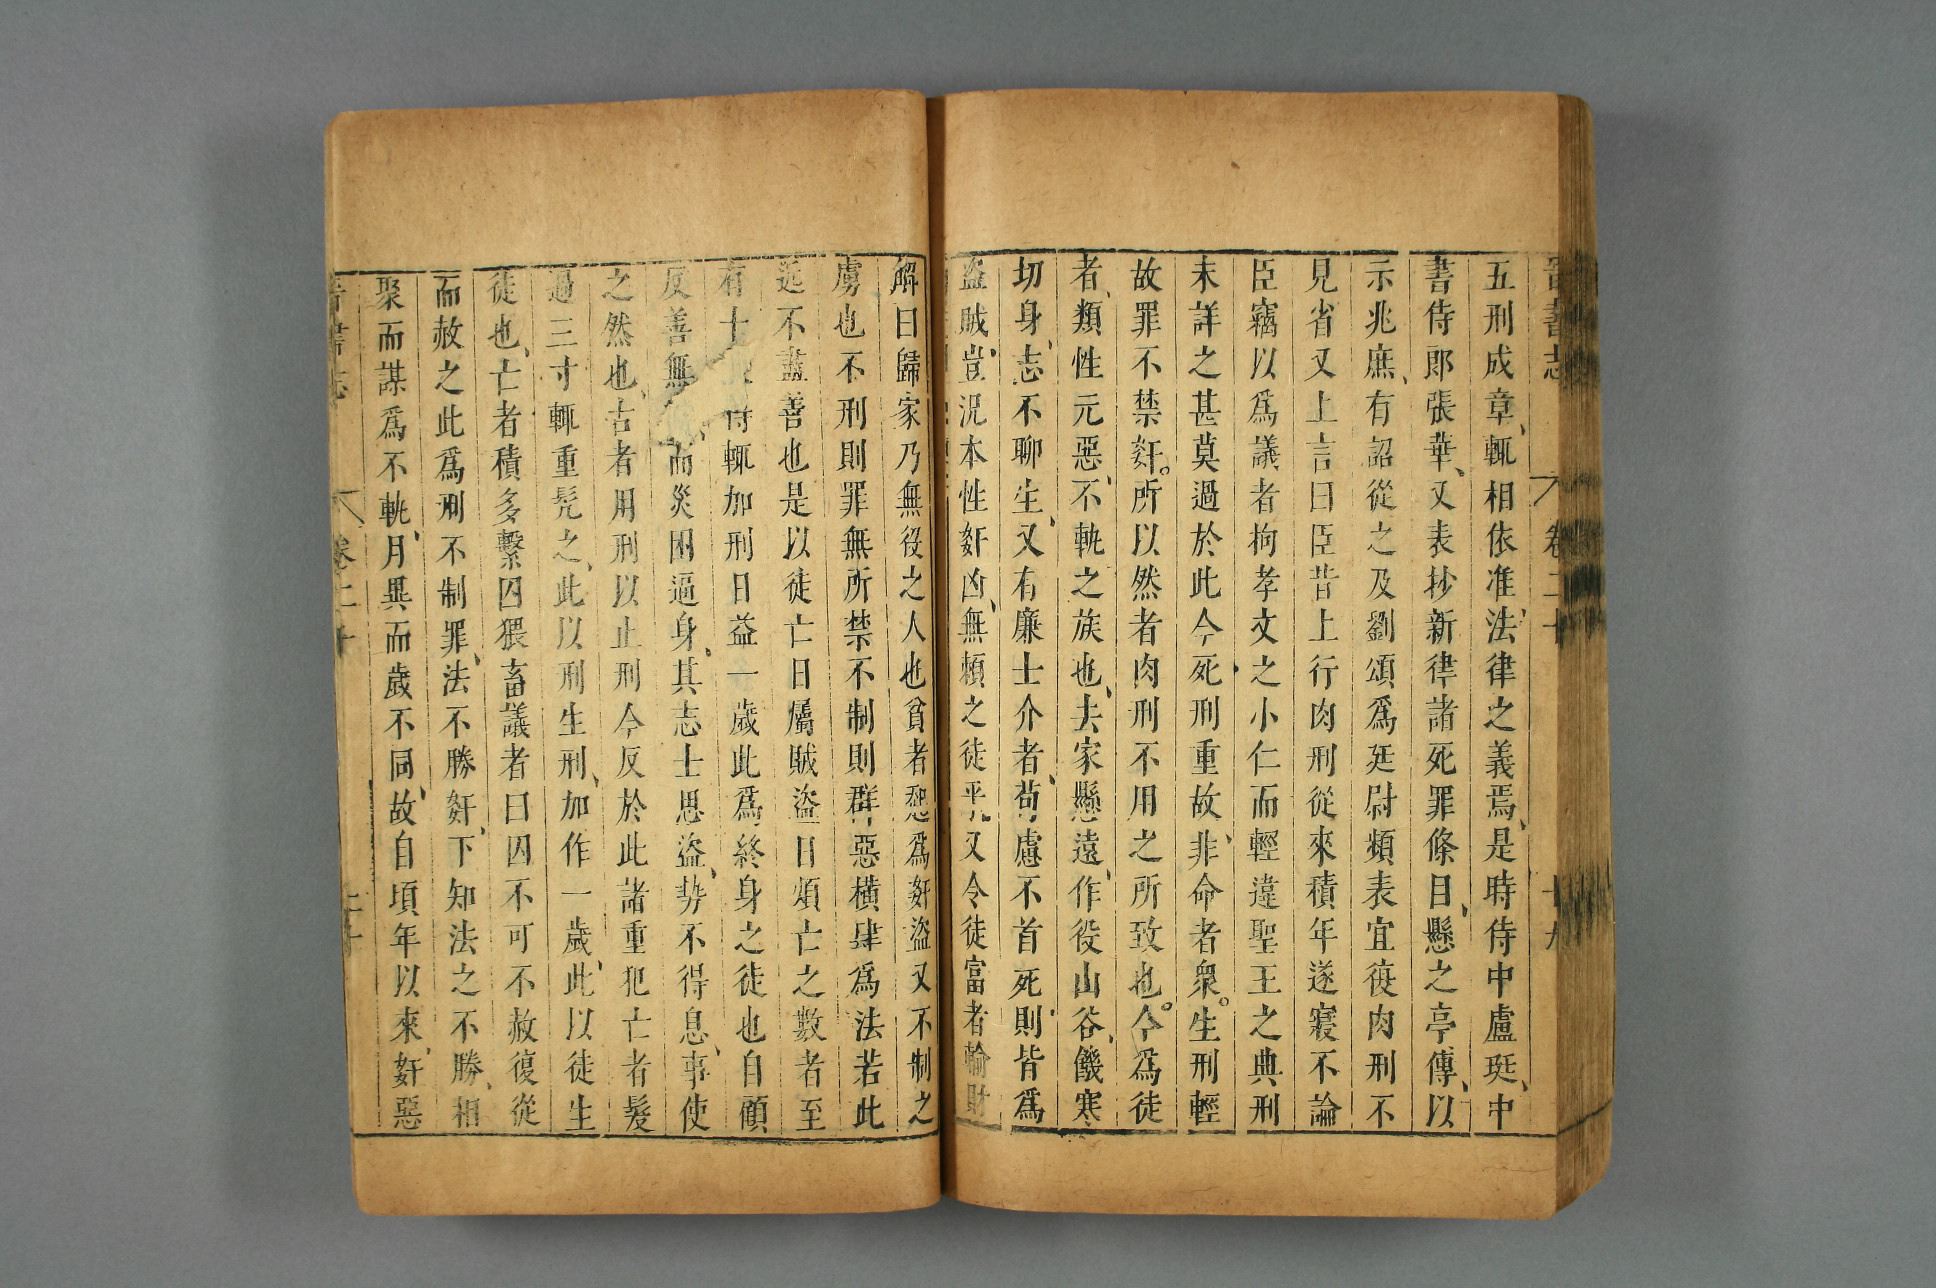 晉書志 卷二十 十九
五刑成章輒相依准法律之義焉是時侍中盧珽中
書侍郎張華又表抄新律諸死罪條目懸之亭傳以
示兆庶有詔從之及劉頌爲廷尉頻表宜復肉刑不
見省又上言曰臣昔上行肉刑從來積年遂寢不論
臣竊以爲議者拘孝文之小仁而輕違聖王之典刑
未詳之甚莫過於此今死刑重故非命者衆生刑輕
故罪不禁姧所以然者肉刑不用之所致也今爲徒
者類性元惡不軌之族也去家懸遠作役山谷饑寒
切身志不聊生又有廉士介者苟慮不首死則皆爲
盜賊豈況本性姧凶無頼之徒乎又令徒富者輸財
解日歸家乃無役之人也貧者起爲姧盜又不制之
虜也不刑則罪無所禁不制則群惡橫肆爲法若此
近不盡善也是以徒亡日屬賊盜日煩亡之數者至
有十 得輒加刑日益一歲此爲終身之徒也自顧
反善無 而災困逼身其志士思盜勢不得息事使
之然也古者用刑以止刑今反於此諸重犯亡者髮
過三寸輒重髠之此以刑生刑加作一歲此以徒生
徒也亡者積多繫囚猥畜議者曰囚不可不赦復從
而赦之此爲刑不制罪法不勝姧下知法之不勝相
聚而謀爲不軌月異而歲不同故自頃年以來姧惡
晉書志 卷二十 二十